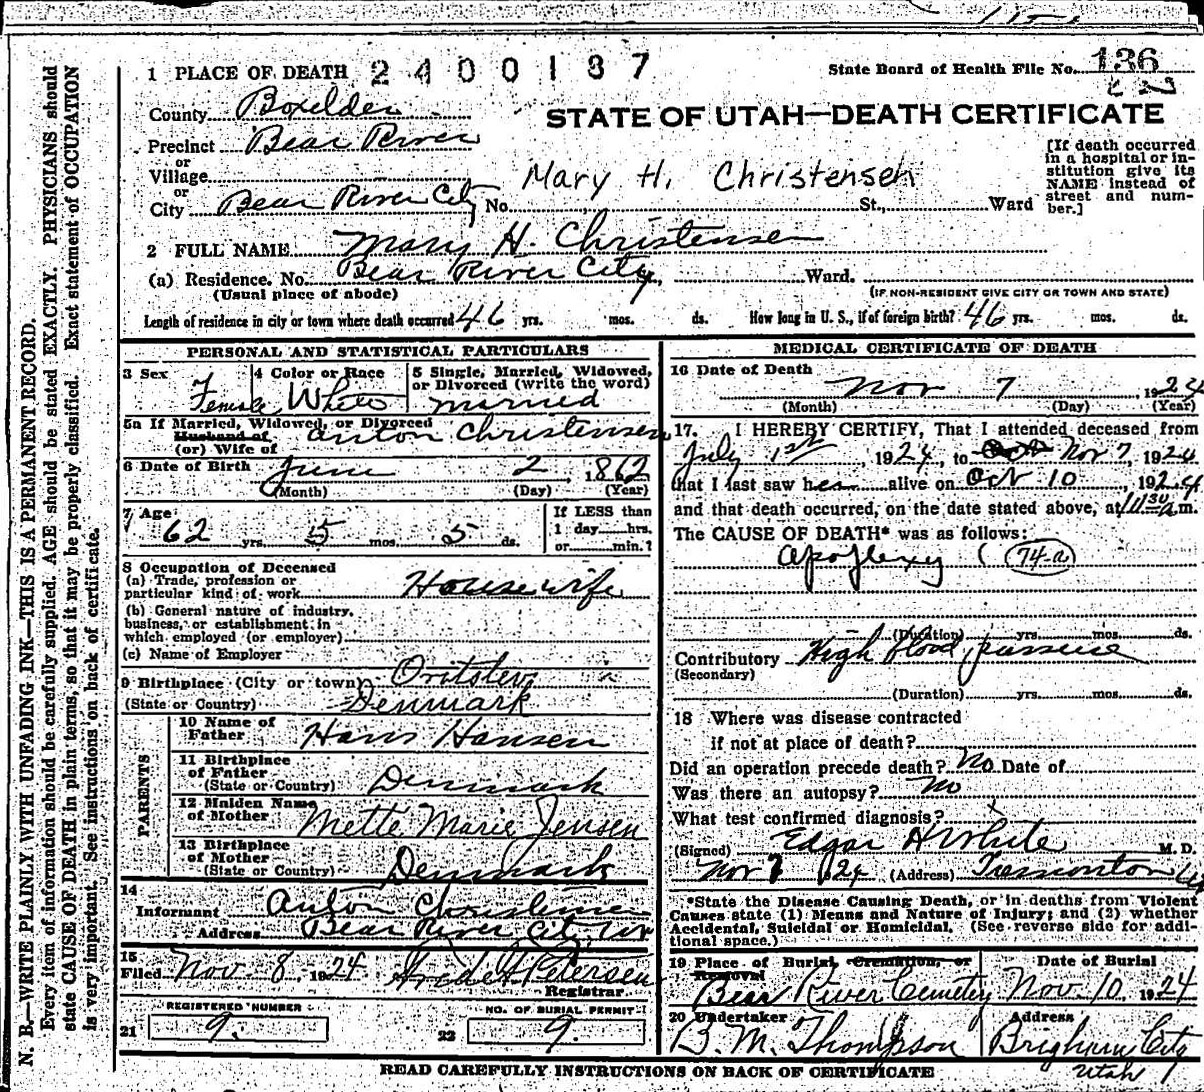 1 PLACE OF DEATH 2400137
State Board of Health File No. 136
County Boxelder
STATE OF UTAH—DEATH CERTIFICATE
Precinct Bear River
or
Village
or
City Bear River City No. Mary H. Christensen St., Ward
[If death occurred
in a hospital or in-
stitution give its
NAME instead of
street and num-
ber.]
2 FULL NAME Mary H. Christensen
(a) Residence. No. Bear River City, Ward.
(Usual place of abode) (IF NON-RESIDENT GIVE CITY OR TOWN AND STATE)
Length of residence in city or town where death occurred 46 yrs. mos. ds. How long in U. S., if of foreign birth? 46 yrs. mos. ds.
PERSONAL AND STATISTICAL PARTICULARS
3 Sex Female
4 Color or Race White
5 Single, Married, Widowed,
or Divorced (write the word)
married
5a If Married, Widowed, or Divorced
Husband of
(or) Wife of Anton Christensen
6 Date of Birth June 2, 1862
(Month) (Day) (Year)
7 Age
62 yrs. 5 mos. 5 ds.
If LESS than
1 day hrs.
or min.?
8 Occupation of Deceased
(a) Trade, profession or
particular kind of work Housewife
(b) General nature of industry,
business, or establishment in
which employed (or employer)
(c) Name of Employer
9 Birthplace (City or town)
(State or Country) Denmark
PARENTS
10 Name of
Father Hans Hansen
11 Birthplace
of Father
(State or Country) Denmark
12 Maiden Name
of Mother Mette Marie Jensen
13 Birthplace
of Mother
(State or Country) Denmark
14
Informant Anton Christensen
Address Bear River City Ut
15
Filed Nov. 8 1924 Petersen
Registrar.
REGISTERED NUMBER
21 9.
NO. OF BURIAL PERMIT
22 9.
MEDICAL CERTIFICATE OF DEATH
16 Date of Death
Nov 7, 1924
(Month) (Day) (Year)
17. I HEREBY CERTIFY, That I attended deceased from
July 1st, 1924, to Oct Nov 7, 1924
that I last saw her alive on Oct 10, 1924
and that death occurred, on the date stated above, at 11 30 a m.
The CAUSE OF DEATH* was as follows:
Apoplexy (74-a)
(Duration) yrs. mos. ds.
Contributory High blood pressure
(Secondary)
(Duration) yrs. mos. ds.
18 Where was disease contracted
if not at place of death?
Did an operation precede death? No Date of
Was there an autopsy? no
What test confirmed diagnosis?
(Signed) Edgar H White M. D.
Nov 7 1924 (Address) Tremonton U
*State the Disease Causing Death, or in deaths from Violent
Causes state (1) Means and Nature of Injury; and (2) whether
Accidental, Suicidal or Homicidal. (See reverse side for addi-
tional space.)
19 Place of Burial, Cremation, or
Removal
Bear River Cemetery
Date of Burial
Nov. 10, 1924
20 Undertaker
B. M. Thompson
Address
Brigham City
Utah
READ CAREFULLY INSTRUCTIONS ON BACK OF CERTIFICATE
N. B.—WRITE PLAINLY WITH UNFADING INK—THIS IS A PERMANENT RECORD.
Every item of information should be carefully supplied. AGE should be stated EXACTLY. PHYSICIANS should
state CAUSE OF DEATH in plain terms, so that it may be properly classified. Exact statement of OCCUPATION
is very important. See instructions on back of certificate.